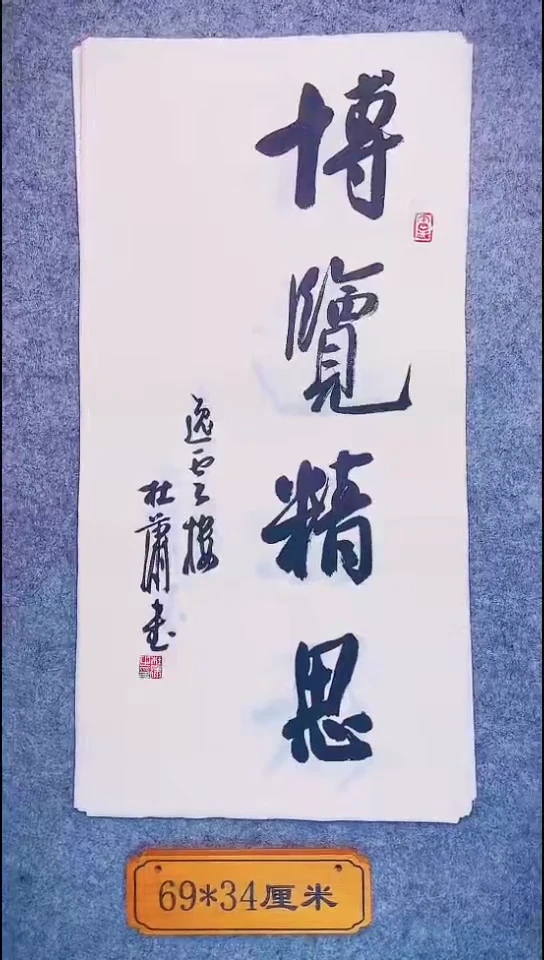 博覽精思
逸雲樓
杜蕭書
69*34厘米